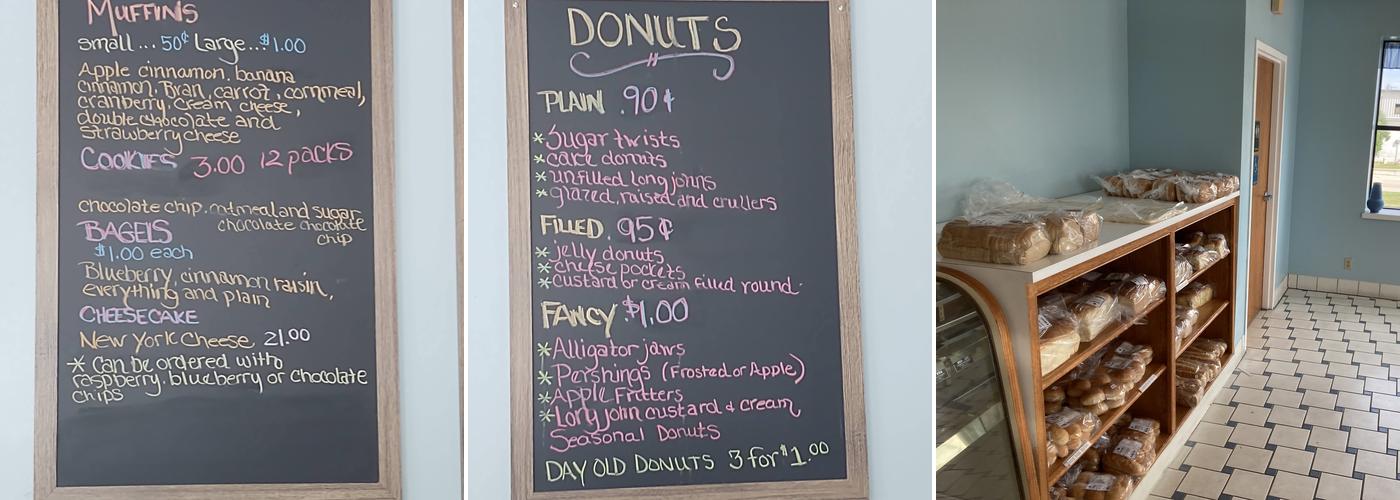 MUFFINS
small...50¢ Large...$1.00
Apple cinnamon, banana
cinnamon, Bran, carrot, cornmeal,
cranberry, cream cheese,
double chocolate and
strawberry cheese
COOKIES 3.00 12 packs
chocolate chip, oatmeal and sugar
chocolate chocolate
chip
BAGELS
$1.00 each
Blueberry, cinnamon raisin,
everything and plain
CHEESECAKE
New York Cheese 21.00
* Can be ordered with
raspberry, blueberry or chocolate
chips
DONUTS
PLAIN .90¢
*Sugar twists
*cake donuts
*unfilled long johns
*glazed, raised and crullers
FILLED .95¢
*jelly donuts
*cheese pockets
*custard or cream filled round
FANCY $1.00
*Alligator jaws
*Pershings (Frosted or Apple)
*Apple Fritters
*Long john custard & cream
Seasonal Donuts
DAY OLD DONUTS 3 for $1.00